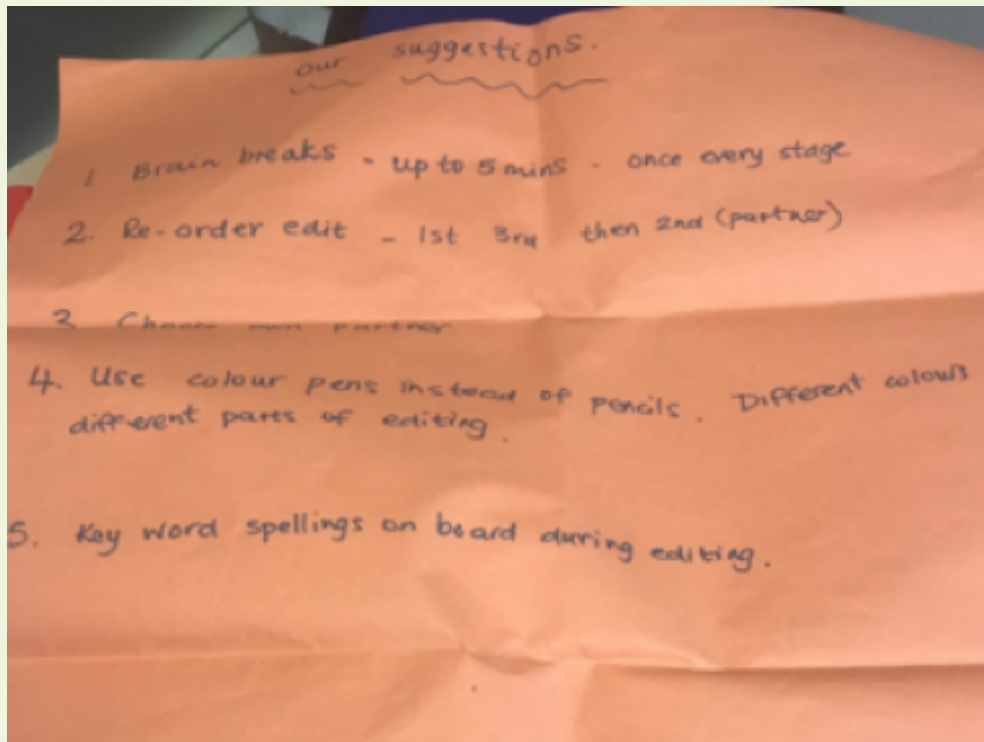 our suggestions.
1 Brain breaks - up to 5 mins - once every stage
2. Re-order edit - 1st 3rd then 2nd (partner)
3 Choose own partner
4. Use colour pens instead of pencils. Different colours
different parts of editing.
5. Key word spellings on board during editing.